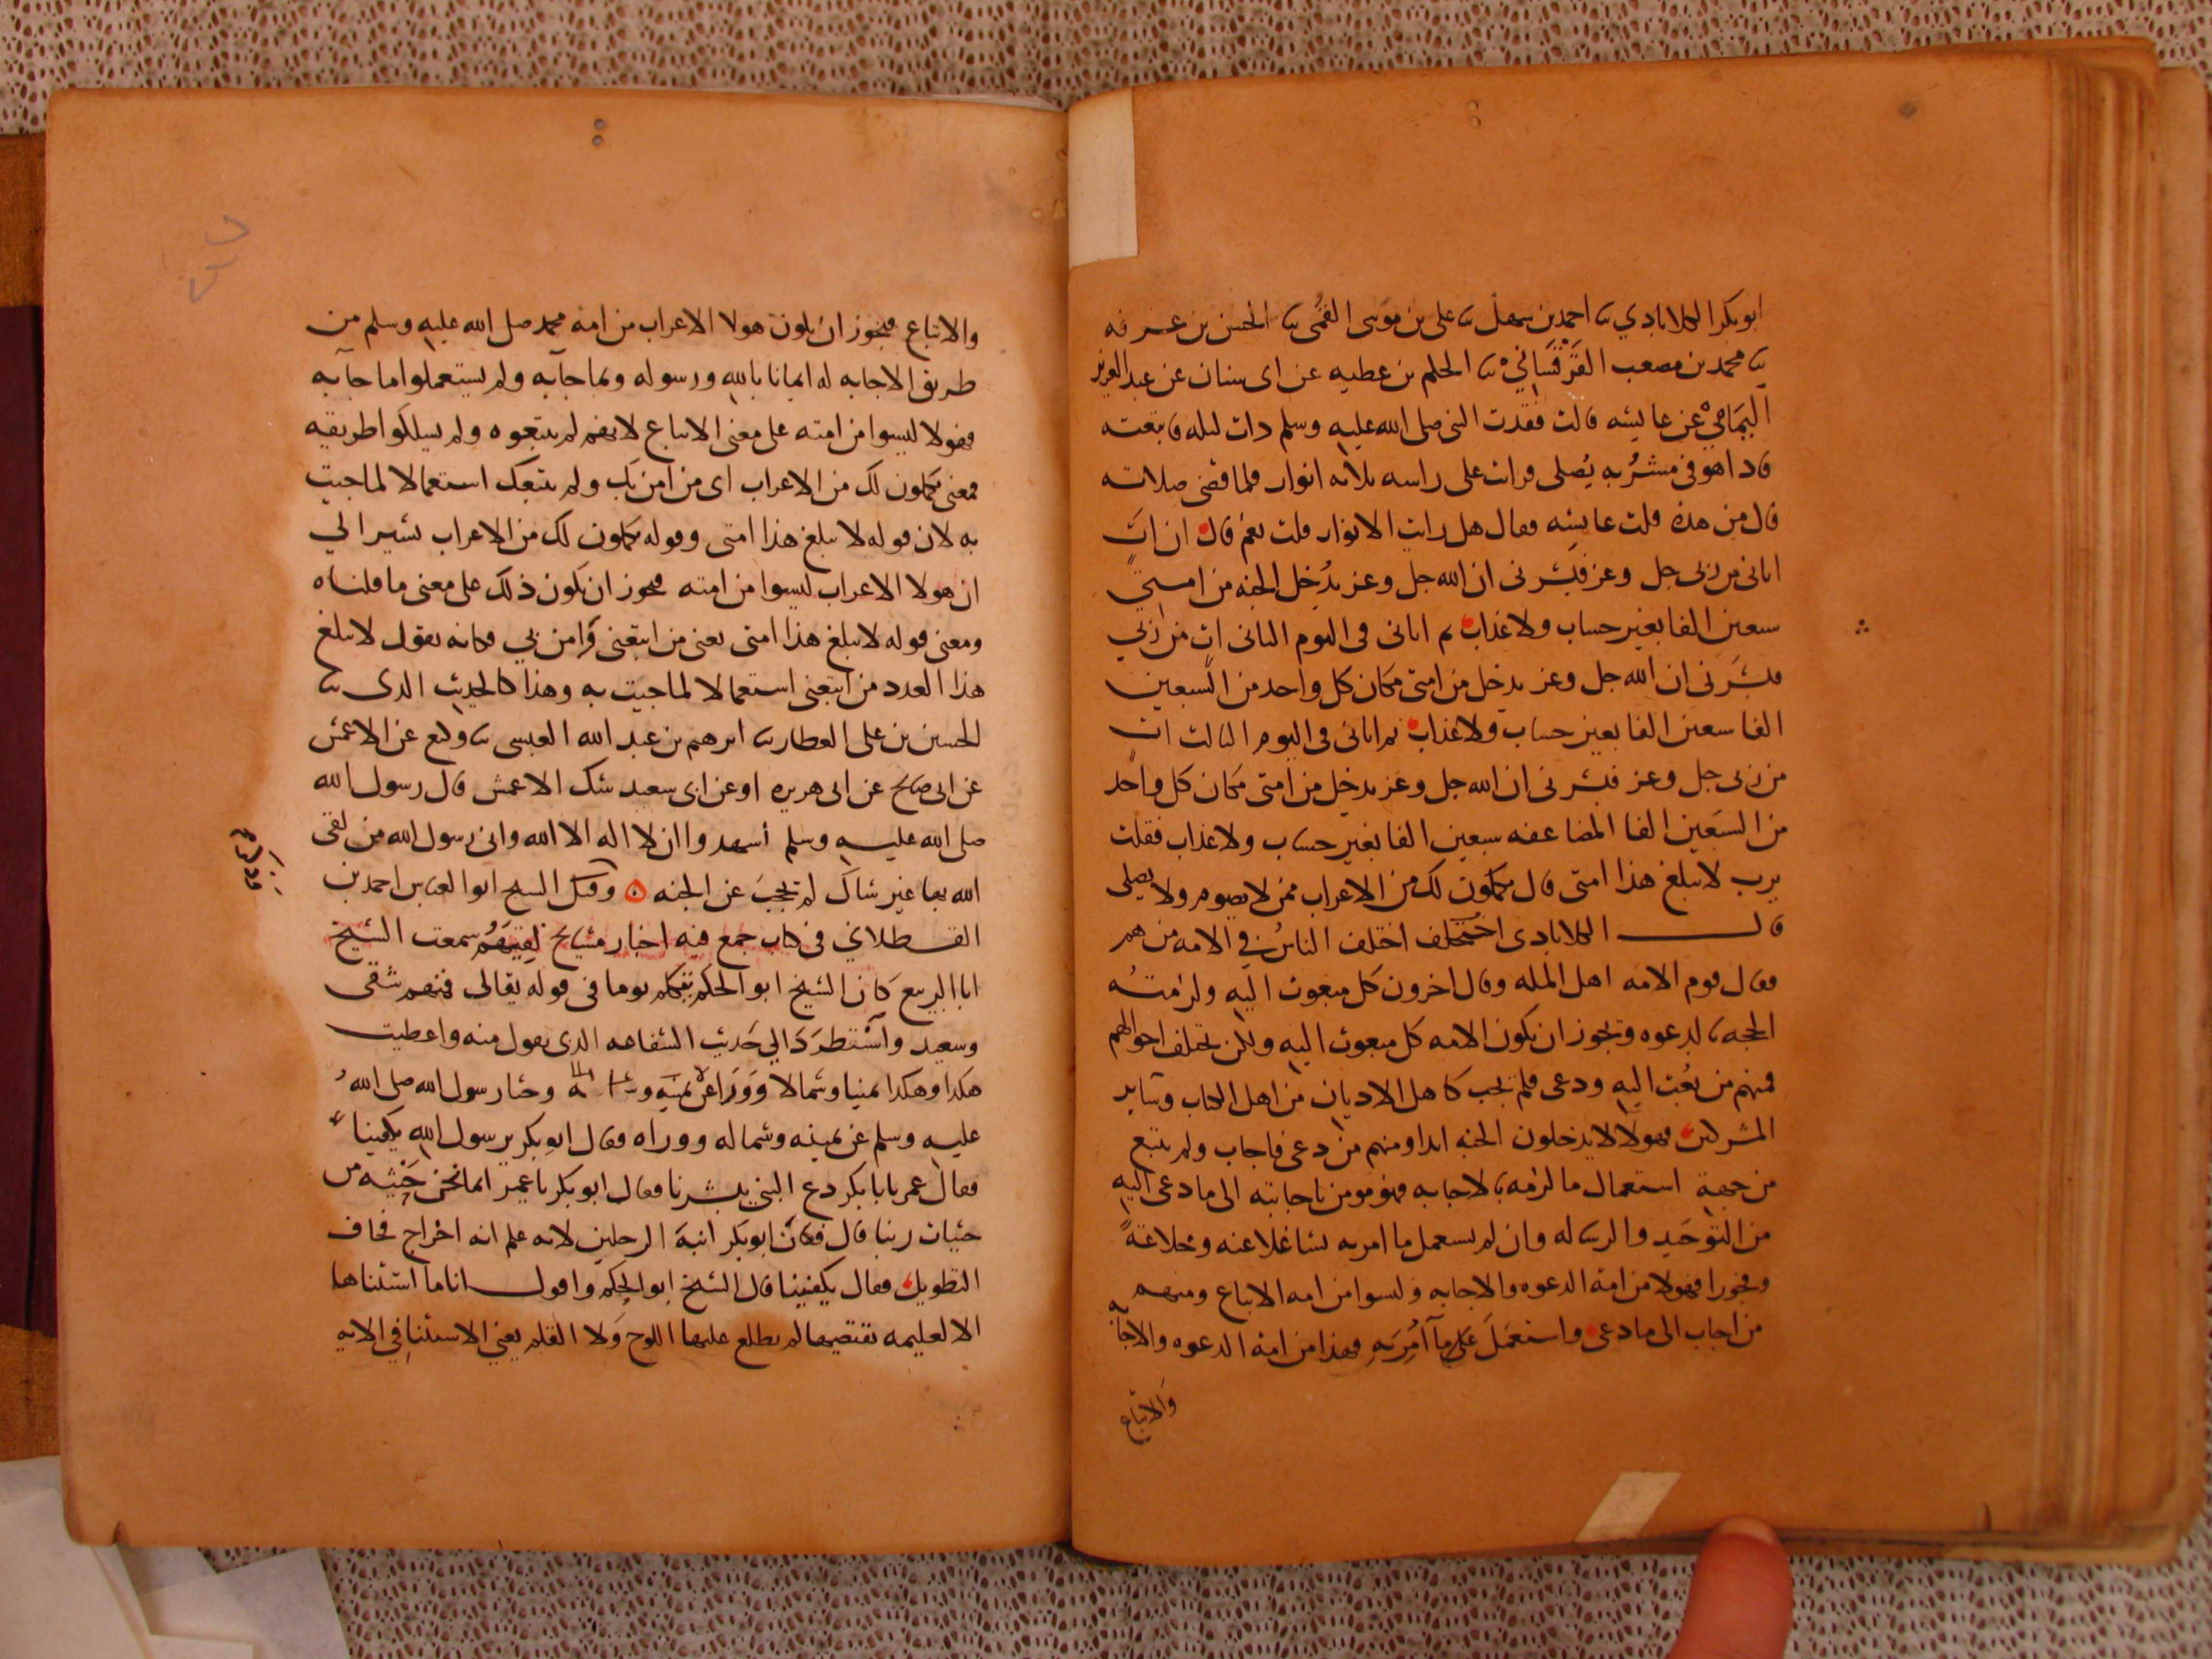 ابو بكر الكلاباذي ثنا احمد بن سهل ثنا على بن موسى القمى ثنا الحسن بن عرفه
ثنا محمد بن مصعب القرقساني ثنا الحكم بن عطيه عن ابى سنان عن عبد العزيز
اليمامي عن عايشه قالت فقدت النبى صلى الله عليه وسلم ذات ليله فاتبعته
فاذا هو فى مشربه يُصلى فرايت على راسه ثلاثه انوار فلما قضى صلاته
قال من هذه قلت عايشه فقال هل رايت الانوار قلت نعم قال ان اتٍ
اتانى من ربى جل وعز فبشرنى ان الله جل وعز يُدخل الجنه من امتي
سبعين الفا بغير حساب ولا عذاب ثم اتانى فى اليوم الثانى اتٍ من ربي
فبشرنى ان الله جل وعز يدخل من امتى مكان كل واحد من السبعين
الفا سبعين الفا بغير حساب ولا عذاب ثم اتانى فى اليوم الثالث اتٍ
من ربى جل وعز فبشرنى ان الله جل وعز يدخل من امتى مكان كل واحد
من السبعين الفا المضاعفه سبعين الفا بغير حساب ولا عذاب فقلت
يرب لا يبلغ هذا امتى قال يكملون لك من الاعراب ممن لا يصوم ولا يصلى
قال الكلاباذى اختلف الناسُ في الامه من هم
فقال قوم الامه اهل المله وقال اخرون كل مبعوث اليه ولزمته
الحجه بالدعوه وتجوز ان يكون الامه كل مبعوث اليه ولكن تختلف احوالهم
فمنهم من بُعث اليه ودعى فلم يجب كاهل الاديان من اهل الكتاب وساير
المشركين فهولا لا يدخلون الجنه ابدا ومنهم من دعى فاجاب ولم يتبع
من جهة استعمال ما لزمه بالاجابه فهو مومن باجابته الى ما دعى اليه
من التوحيد والرساله وان لم يستعمل ما امر به تشاغلا عنه وخلاعةً
وفجورا فهولا من امة الدعوه والاجابه وليسوا من امه الاتباع ومنهم
من اجاب الى ما دعى واستعمَلَ ما اُمِرَ بهِ فهذا من امة الدعوه والاجابه
والاتباع
والاتباع فيجوز ان يكون هولا الاعراب من امة محمد صلى الله عليه وسلم من
طريق الاجابه له ايمانا بالله ورسوله وبما جآ به ولم يستعملوا ما جآ به
فهولا ليسوا من امته على معنى الاتباع لانهم لم يتبعوه ولم يسلكوا طريقه
فمعنى يكملون لك من الاعراب اى من امن بك ولم يتبعك استعمالا لما جيت
به لان قوله لا يبلغ هذا امتى وقوله يكملون لك من الاعراب يشير الي
ان هولا الاعراب ليسوا من امته فيجوز ان يكون ذلك على معنى ما قلناه
ومعنى قوله لا يبلغ هذا امتى يعنى من اتبعنى وامن بي فكانه يقول لا يبلغ
هذا العدد من اتبعنى استعمالا لما جيت به وهذا كالحديث الذى ثنا
الحسين بن على العطار ثنا ابرهيم بن عبد الله العبسى ثنا وكيع عن الاعمش
عن ابى صالح عن ابى هريره او عن ابى سعيد شك الاعمش قال رسول الله
صلى الله عليه وسلم أشهد وا ان لا اله الا الله وانى رسول الله من لقى
الله بها غير شاك لم تحجب عن الجنه وقال الشيخ ابو العباس احمد بن
القسطلاني فى كتاب جمع فيه اخبار مشايخ لقيهم سمعت الشيخ
ابا الربيع كان الشيخ ابو الحكم يتكلم يوما فى قوله تعالى فمنهم شقى
وسعيد واستطرَدَ الي حَديث الشفاعه الذى يقول منه واعطيت
هكذا وهكذا يمنيا وشمالا ووَرا عن يمينه و وحثا رسول الله صلى الله
عليه وسلم عن يمينه وشماله ووراه وقال ابو بكر يرسول الله يكفينا
فقال عمر يابا بكر دع النبي يبشرنا فقال ابو بكر يا عمر انما نحن حَثْيه من
حثيات ربنا قال فكان ابو بكر انبهَ الرجلين لانه علم انه اخراج فخاف
التطويل فقال يكفينا قال الشيخ ابو الحكم واقول انا ما استثناها
الا لعليمه تقتضيها لم يطلع عليها اللوح وَلا القلم يعني الاستثنا في الايه